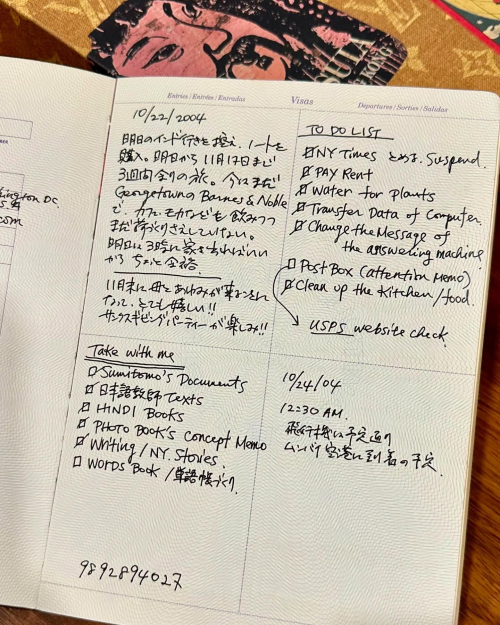 Entries / Entrées / Entradas
Visas
Departures / Sorties / Salidas
10/22/2004
明日のインド行きを控え、ノートを
購入。明日から11月17日まで
3週間余りの旅。今はまだ
GeorgetownのBarnes & Noble
で、カフェモカなどを飲みつつ
まだ荷づくりさえしていない。
明日は3時に家を出ればいい
からちょっと余裕。
11月末に母とあゆみが来ることに
なって、とても嬉しい!!
サンクスギビングパーティーが楽しみ!!
TO DO LIST
NY Times とめる. Suspend.
PAY Rent
Water for Plants
Transfer Data of Computer.
Change the Message of
the answering machine.
Post Box (attention Memo)
Clean up the Kitchen/food.
USPS website check.
Take with me
Sumitomo's Documents
日本語教師 Texts
HINDI Books
PHOTO Book's Concept Memo
Writing / NY. Stories.
WORDS Book / 単語帳づくり.
9892894027
10/24/04
12:30 AM.
飛行機は予定通り
ムンバイ空港に到着の予定.
ington DC.
com